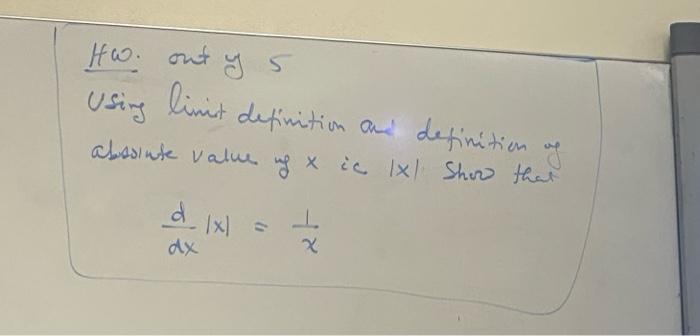 HW. out of 5
Using limit definition and definition of
absolute value of x ie |x| Show that
d/dx |x| = 1/x